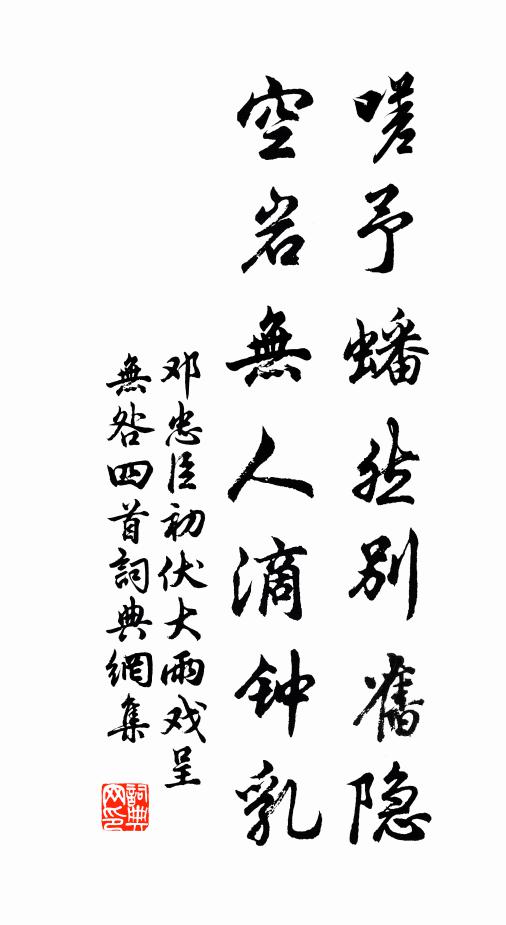 嗟予蟠然别舊隐
空岩無人滴钟乳
邓忠臣初伏大雨戏呈
無咎四首詞典網集
詞典
网印